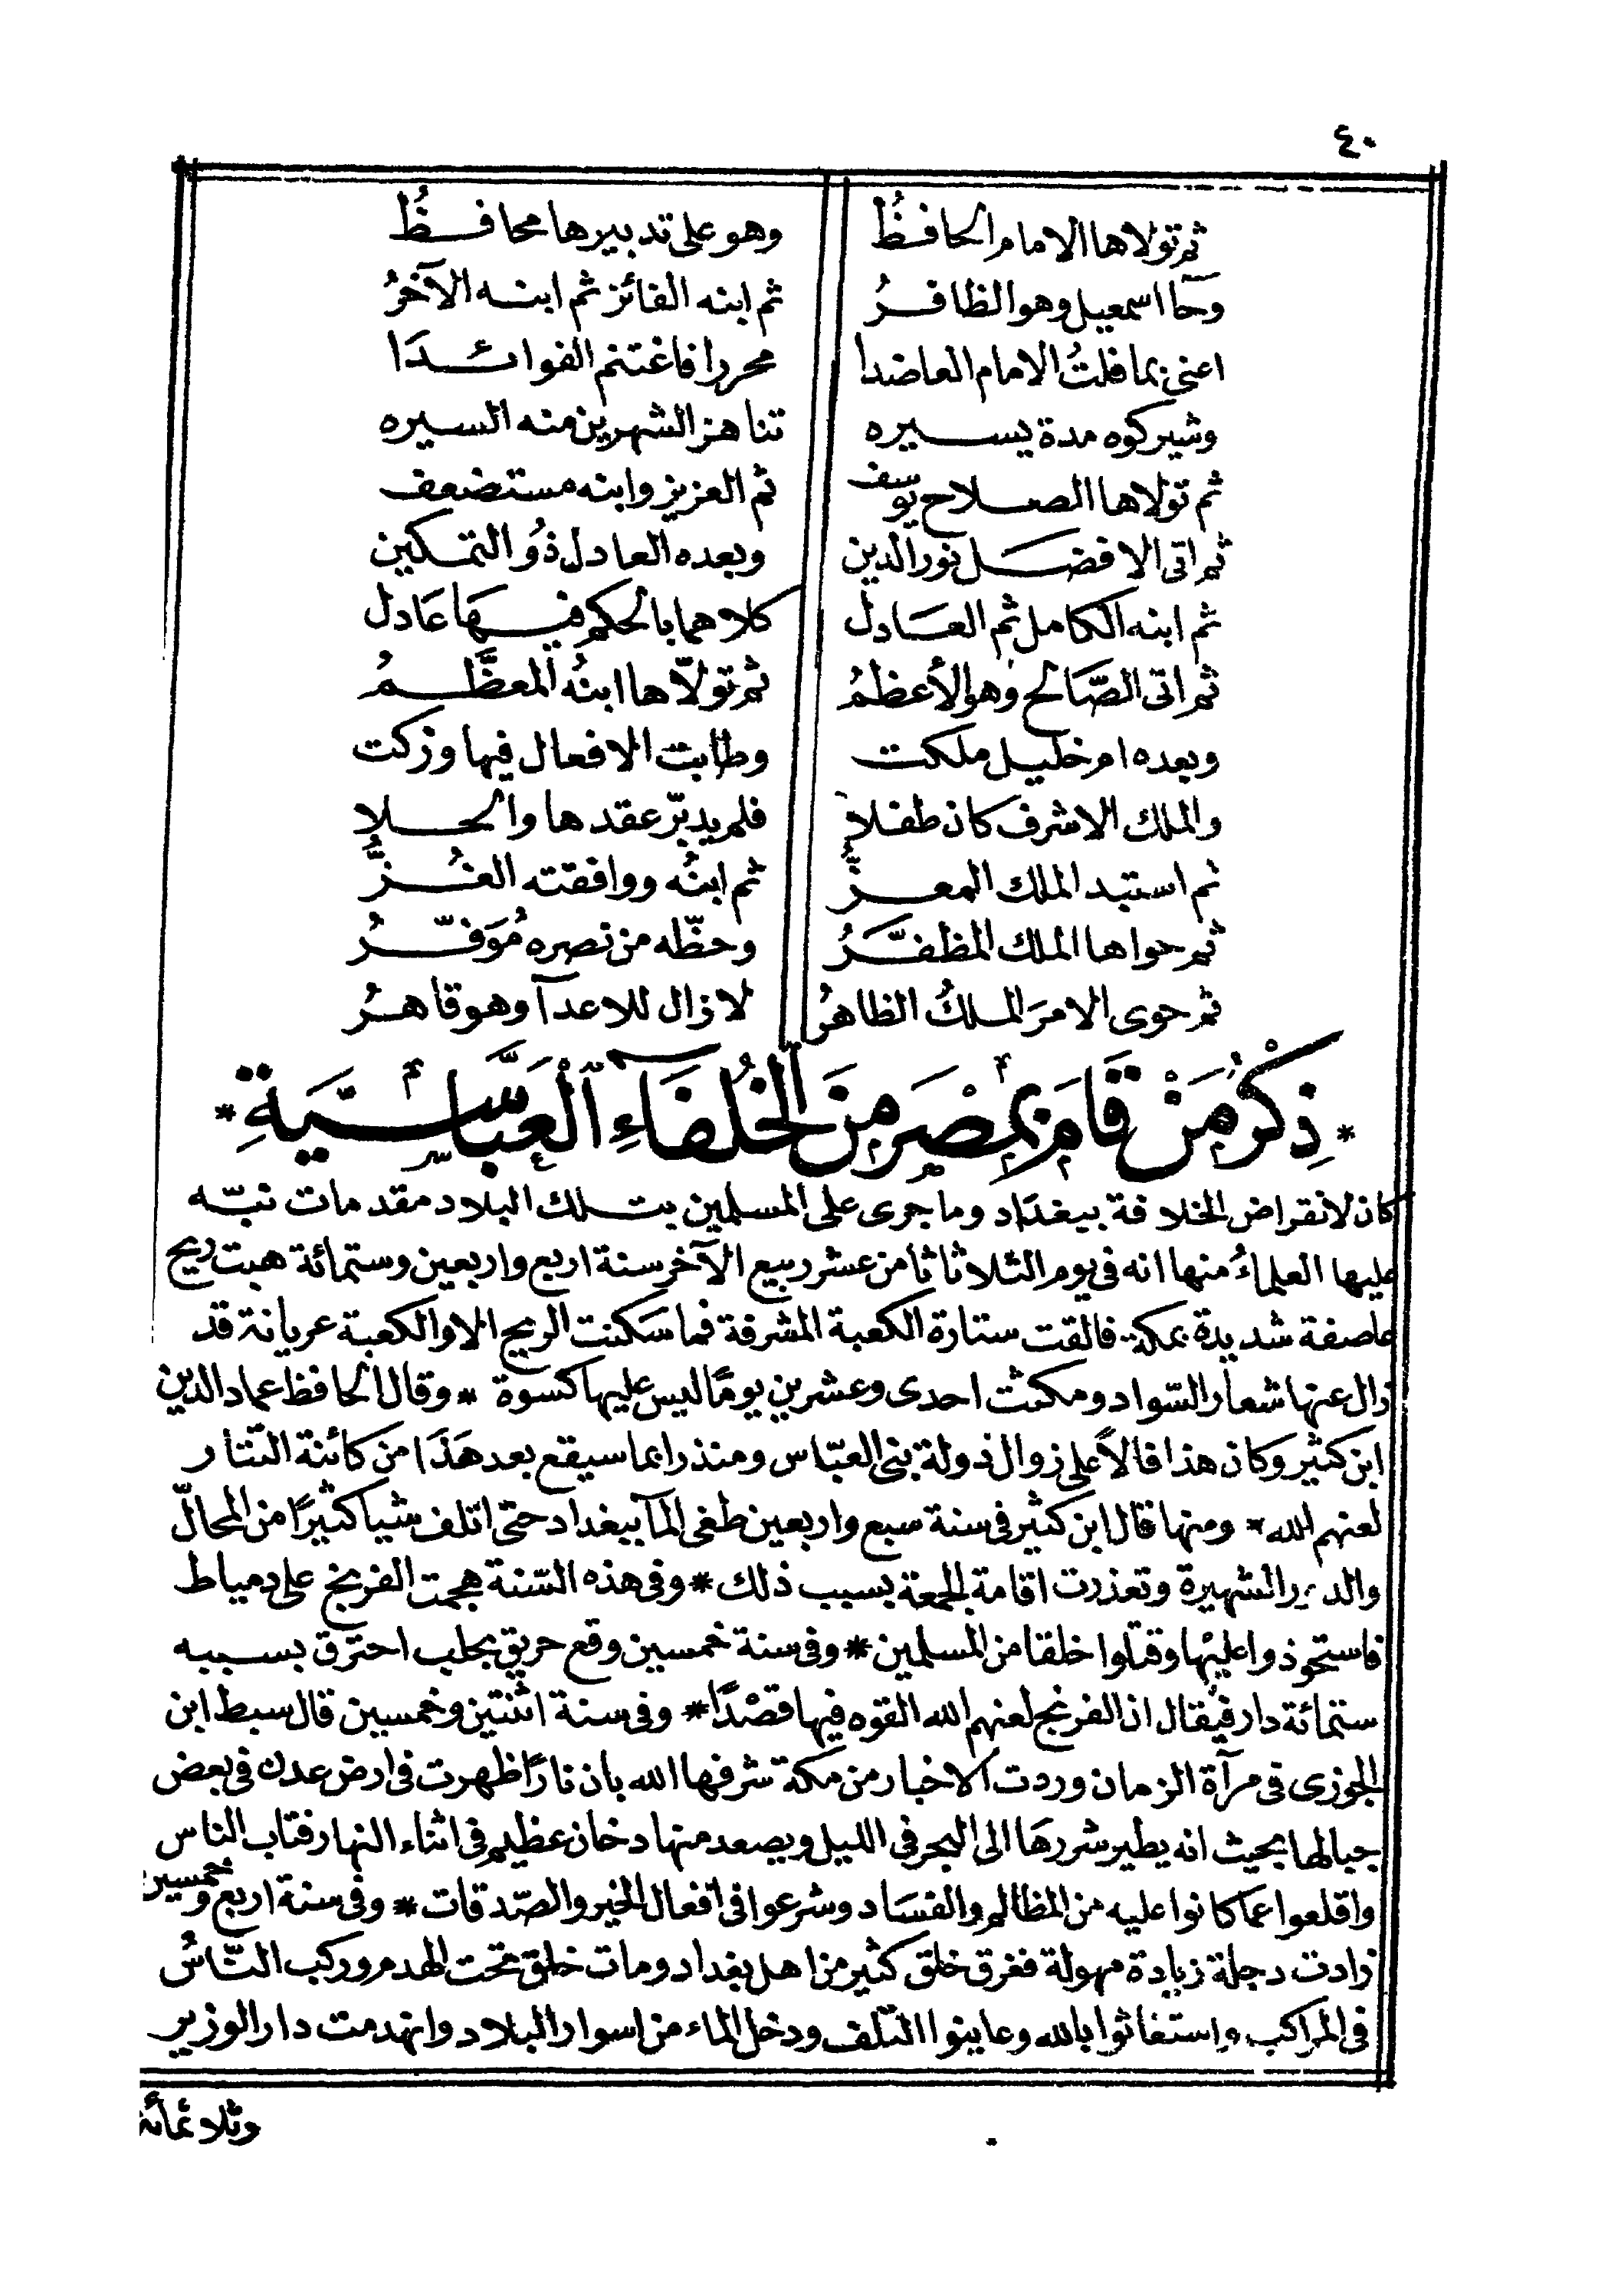 ٤٠
ثم تولاها الامام الحافظُ وهو على تدبيرها محافـظُ
وحآ اسمعيل وهو الظافـرُ ثم ابنه الفائز ثم ابنـه الآخرُ
اعنى بما قلتُ الامام العاضدا محررا فاغتنم الفوائـدَا
وشيركوه مدة يسـيره تناهز الشهرين منه السيره
ثم تولاها الصـلاح يوسف ثم العزيز وابنه مستضعف
ثم اتى الافضـل نور الدين وبعده العادل ذُو التمـكين
ثم ابنه الكامل ثم العـادل كلاهما بالحكم فيـهَا عَادل
ثم اتى الصَّالح وهو الأعظمُ ثم تولّاها ابنُه المعظَّـمُ
وبعده ام خليـل ملكت وطابت الافعال فيها وزكت
والملك الاشرف كان طفـلا فلم يدبّر عقدها والحـلا
ثم استبد الملك المعـزُّ ثم ابنُه ووافقته الغُـزُّ
ثم حواها الملك المظفَّـرُ وحظّه من نصره مُوَفّـرُ
ثم حوى الامرَ الملـكُ الظاهرُ لازال للاعدآ وهو قاهـرُ
* ذِكْرُ مَنْ قَامَ بِمِصْرَ مِنَ الْخُلَفَاءِ الْعَبَّاسِيَّةِ *
كان لانقراض الخلافة ببغدَاد وما جرى على المسلمين بتـلك البلاد مقدمات نبّـه
عليها العلماءُ منها انه فى يوم الثلاثا ثامن عشر ربيع الآخر سنة اربع واربعين وستمائة هبت ريح
عاصفة شديدة بمكة فالقت ستارة الكعبة المشرفة فما سَكنت الريح الا والكعبة عريانة قد
زال عنها شعار السّواد ومكثت احدى وعشرين يومًا ليس عليها كسوة * وقال الحافظ عماد الدين
ابن كثير وكان هذا فالاً على زوال دولة بنى العبّاس ومنذرا بما سيقع بعد هَذَا من كائنة التتار
لعنهم الله * ومنها قال ابن كثير فى سنة سبع واربعين طغى المآ ببغداد حتى اتلف شيا كثيرًا من المحالّ
والدور الشهيرة وتعذرت اقامة الجمعة بسبب ذلك * وفى هذه السّنة هجمت الفرنج على دمياط
فاستحوذوا عليْها وقتلوا خلقا من المسلمين * وفى سنة خمسين وقع حريق بحلب احترق بسـببه
ستمائة دار فيقال ان الفرنج لعنهم الله القوه فيها قصْدًا * وفى سنة اثنتين وخمسين قال سبط ابن
الجوزى فى مرآة الزمان وردت الاخبار من مكة شرفها الله بان نارًا ظهرت فى ارض عدن فى بعض
جبالها بحيث انه يطير شررهَا الى البحر فى الليل ويصعد منها دخان عظيم فى اثناء النهار فتاب الناس
واقلعوا عما كانوا عليه من المظالم والفسَاد وشرعوا فى افعال الخير والصّدقات * وفى سنة اربع وخمسين
زادت دجلة زيادة مهولة فغرق خلق كثير من اهل بغداد ومات خلق تحت الهدم وركب النّاسُ
فى المراكب واستغاثوا بالله وعاينوا التلف ودخل الماء من اسوار البلاد وانهدمت دار الوزير
وثلاثمائة